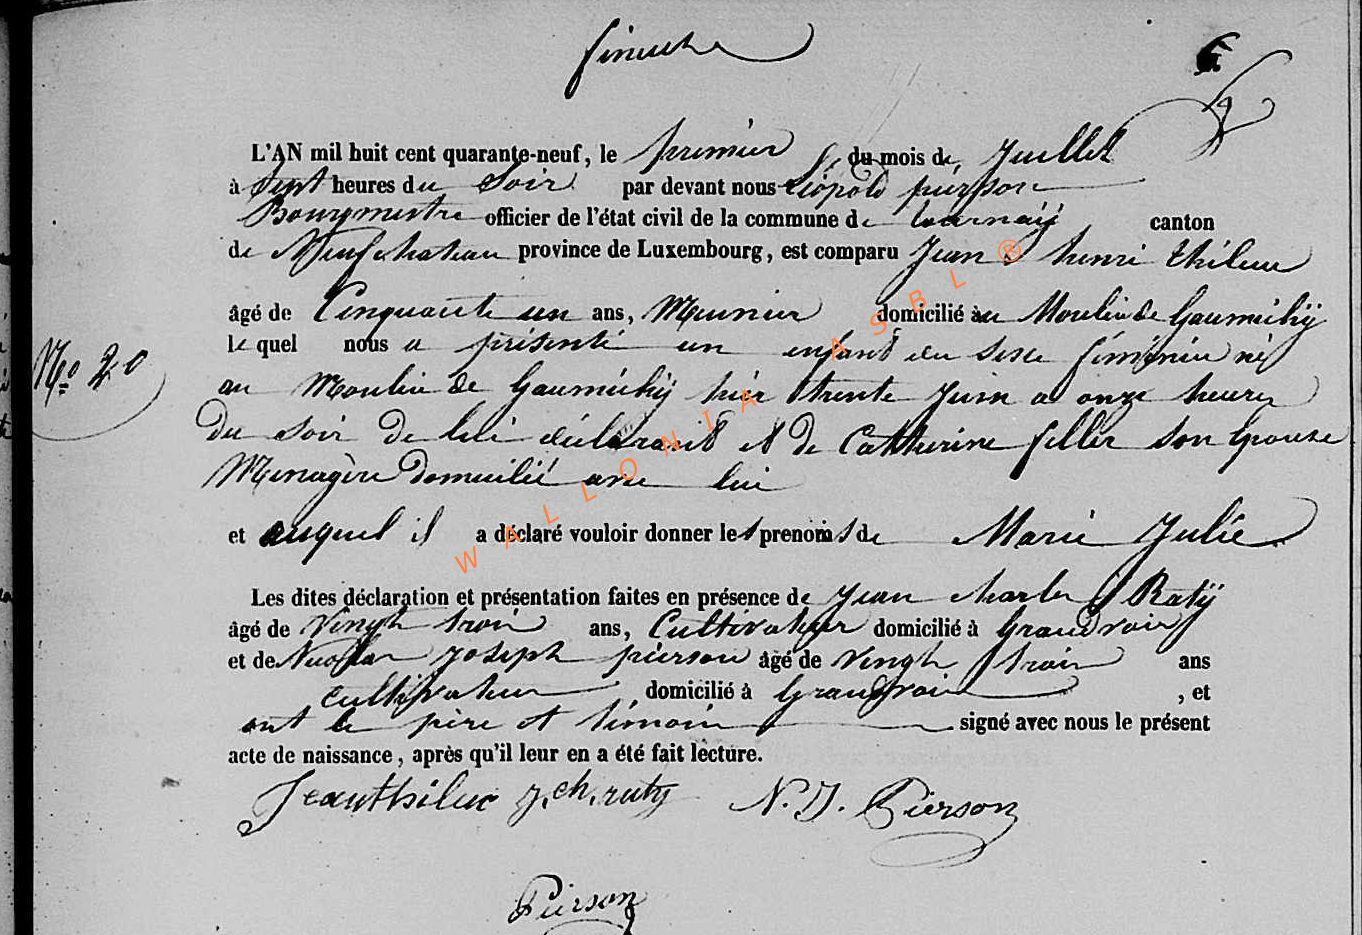 L'AN mil huit cent quarante-neuf, le premier du mois de Juillet
à Sept heures du Soir par devant nous Léopold pierson
Bourgmestre officier de l'état civil de la commune de tournay canton
de Neufchateau province de Luxembourg, est comparu Jean henri thilen
âgé de Cinquante un ans, Meunier domicilié au Moulin de Gaumichy
le quel nous a présenté un enfant du sexe féminin né
No. 20
au Moulin de Gaumichy hier trente Juin a onze heures
du soir de lui déclarant et de Catherine feller son Epouse
Menagère domicilié avec lui
et auquel il a déclaré vouloir donner les prenoms de Marie Julie
Les dites déclaration et présentation faites en présence de Jean charles Raty
âgé de Vingt trois ans, Cultivateur domicilié à Grandvoir
et de Nicolas Joseph pierson âgé de Vingt trois ans
cultivateur domicilié à Grandvoir , et
ont le père et témoin signé avec nous le présent
acte de naissance, après qu'il leur en a été fait lecture.
J. ch. raty N. J. Pierson
Pierson
WALLONIA ASBL ®